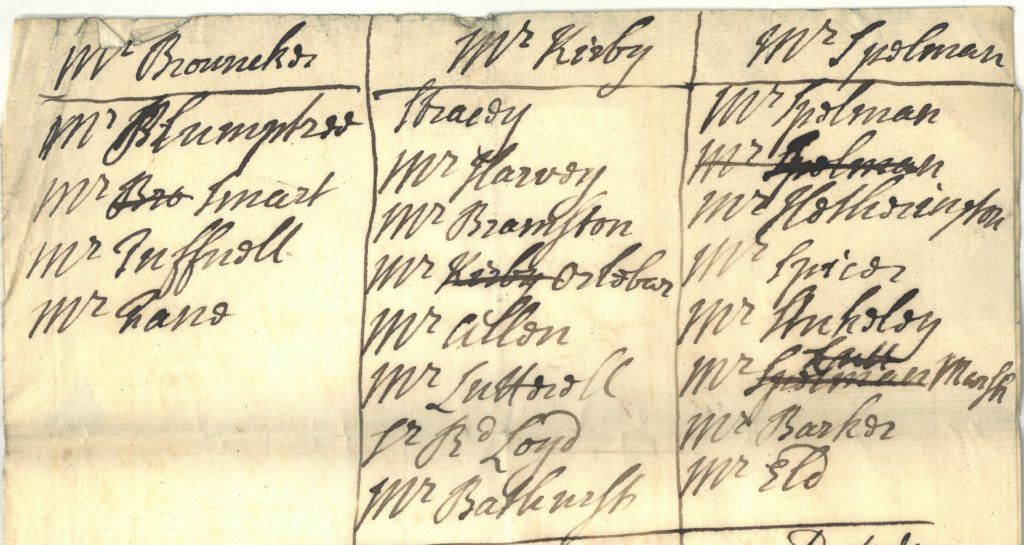 Mr Brouncker
Mr Plumptree
Mr Bro Smart
Mr Tuffnell
Mr Fane
Mr Kirby
Stracey
Mr Harvey
Mr Bramston
Mr Kirby Orlebar
Mr Allen
Mr Lutterell
Sr Rd Loyd
Mr Bathursh
Mr Spelman
Mr Spelman
Mr Spelman
Mr Hetherington
Mr Spicer
Mr Stukeley
Lutt
Mr Spelman Marsh
Mr Barker
Mr Eld